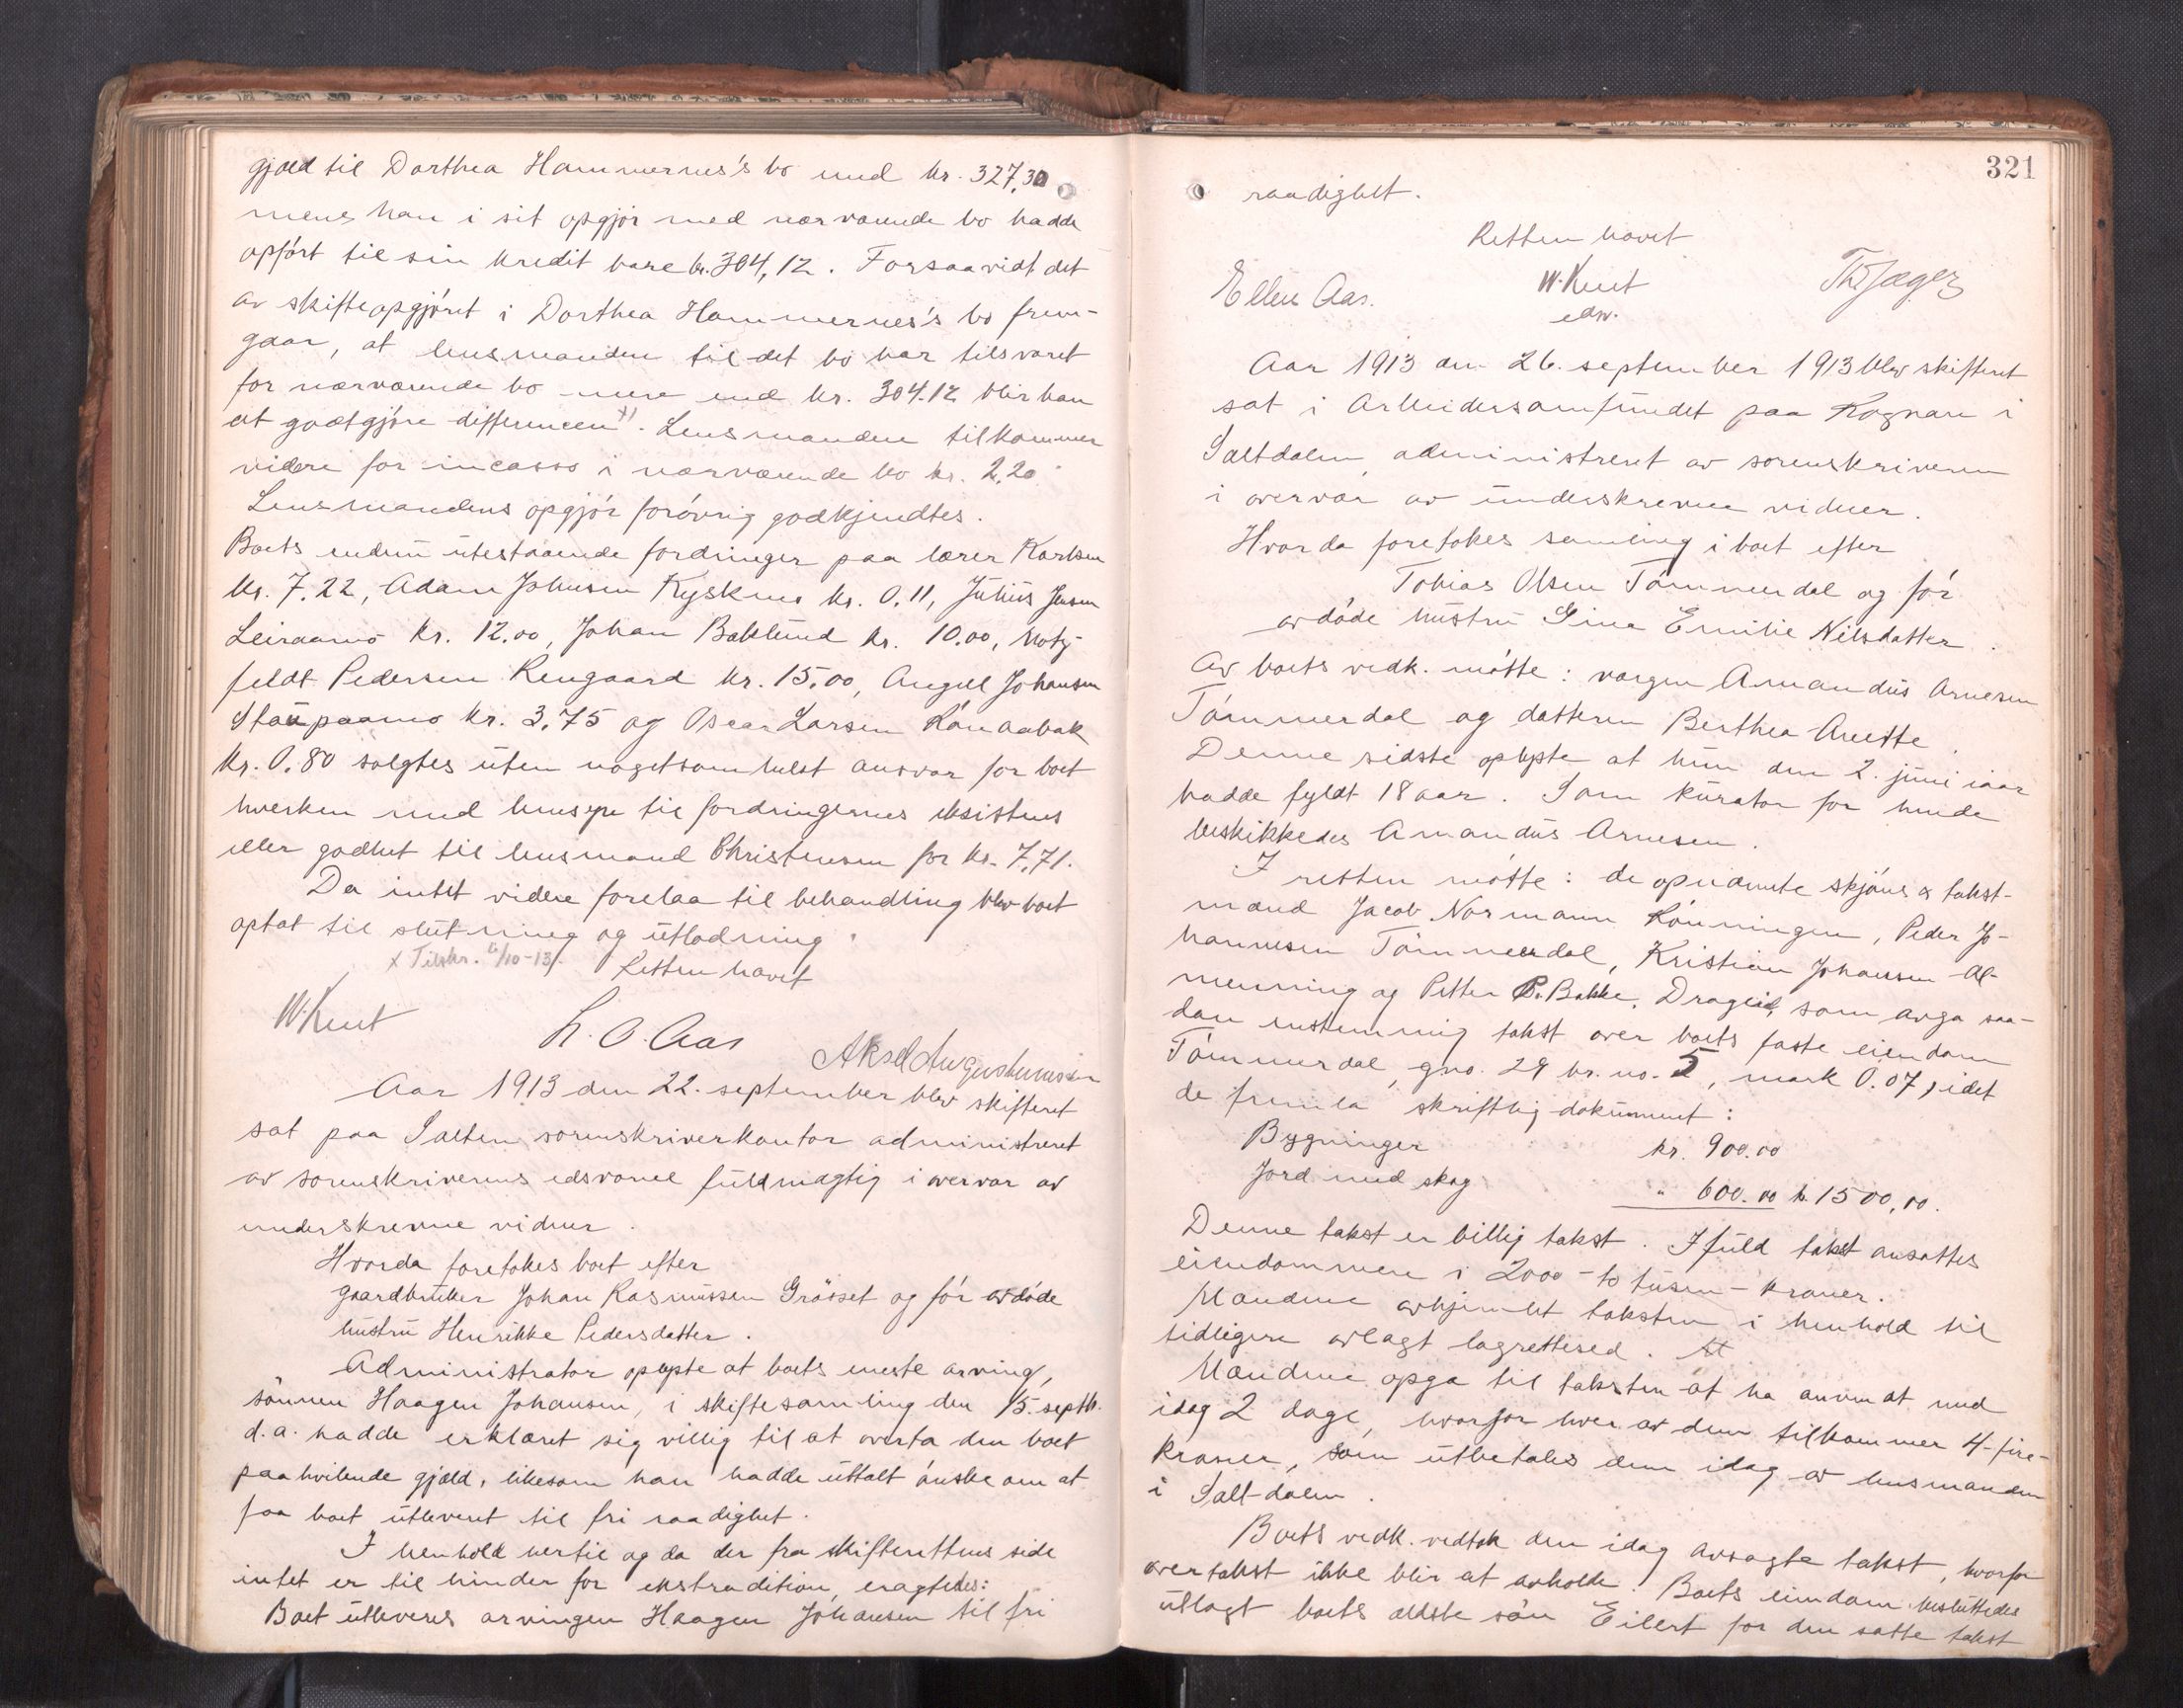 gjæld til Dorthea Hammernes's bo med kr. 327,30
mens han i sit opgjør med nærværende bo hadde
opført til sin kredit bare kr. 304,12. Forsaavidt det
av skifteopgjøret i Dorthea Hammernes's bo frem-
gaar, at lensmanden til det bo har tilsvaret
for nærværende bo mere end kr. 304.12 blir han
at godtgjøre differencen x). Lensmanden tilkommer
videre for incasso i nærværende bo kr. 2,20.
Lensmandens opgjør forøvrig godkjendtes.
Boets endnu utestaaende fordringer paa lærer Karlsen
kr. 7.22, Adam Johnsen Kysknes kr. 0.11, Julius Jensen
Leiraamo kr. 12.00, Johan Baklund kr. 10.00, Motz-
feldt Pedersen Rengaard kr. 15.00, Angell Johansen
Staupaamo kr. 3.75 og Oscar Larsen Rønaabak
kr. 0.80 solgtes uten nogetsomhelst ansvar for boet
hverken med hensyn til fordringernes eksistens
eller godhet til lensmand Christensen for kr. 7.71.
Da intet videre forelaa til behandling blev boet
optat til slutning og utlodning.
x Tilskr. 6/10-13. Retten hævet
W. Kent
L. O. Aas
Aksel Augustinussen
Aar 1913 den 22. september blev skifteret
sat paa Salten sorenskriverkontor administreret
av sorenskriverens edsvorne fuldmægtig i overvær av
underskrevne vidner.
Hvorda foretokes boet efter
gaardbruker Johan Rasmussen Grøsset og før avdøde
hustru Henrikke Pedersdatter.
Administrator oplyste at boets eneste arving,
sønnen Haagen Johansen, i skiftesamling den 15. septb.
d.a. hadde erklæret sig villig til at overta den boet
paahvilende gjæld, likesom han hadde uttalt ønske om at
faa boet utleveret til fri raadighet.
I henhold hertil og da der fra skifterettens side
intet er til hinder for ekstradition eragtedes:
Boet utleveres arvingen Haagen Johansen til fri
321
raadighet.
Retten hævet
Ellen Aas.
W. Kent
edsv.
Th. Jæger
Aar 1913 den 26. september 1913 blev skifteret
sat i Arbeidersamfundet paa Rognan i
Saltdalen, administreret av sorenskriveren
i overvær av underskrevne vidner.
Hvorda foretokes samling i boet efter
Tobias Olsen Tømmerdal og før
avdøde hustru Gina Emilie Nilsdatter.
Av boets vedk. møtte: vergen Amandus Arnesen
Tømmerdal og datteren Berthea Anette.
Denne sidste oplyste at hun den 2. juni iaar
hadde fyldt 18 aar. Som kurator for hende
beskikkedes Amandus Arnesen.
I retten møtte: de opnævnte skjøns & takst-
mænd Jacob Normann Rønningen, Peder Jo-
hannesen Tømmerdal, Kristian Johansen Al-
menning og Petter P. Bakke, Drageid, som avga saa-
dan enstemmig takst over boets faste eiendom
Tømmerdal, gno. 29 br. no. 5, mark 0.07, idet
de fremla skriftlig dokument:
Bygninger kr. 900.00
Jord med skog " 600.00 kr. 1500,00.
Denne takst er billig takst. I fuld takst ansattes
eiendommen i 2000 - to tusen - kroner.
Mændene avhjemlet taksten i henhold til
tidligere avlagt lagretteed. At
Mændene opga til taksten at ha anvendt med
idag 2 dage, hvorfor hver av dem tilkommer 4 - fire -
kroner, som utbetales dem idag av lensmanden
i Saltdalen.
Boets vedk. vedtok den idag avsagte takst, hvorfor
overtakst ikke blir at avholde. Boets eiendom besluttedes
utlagt boets ældste søn Eilert for den satte takst